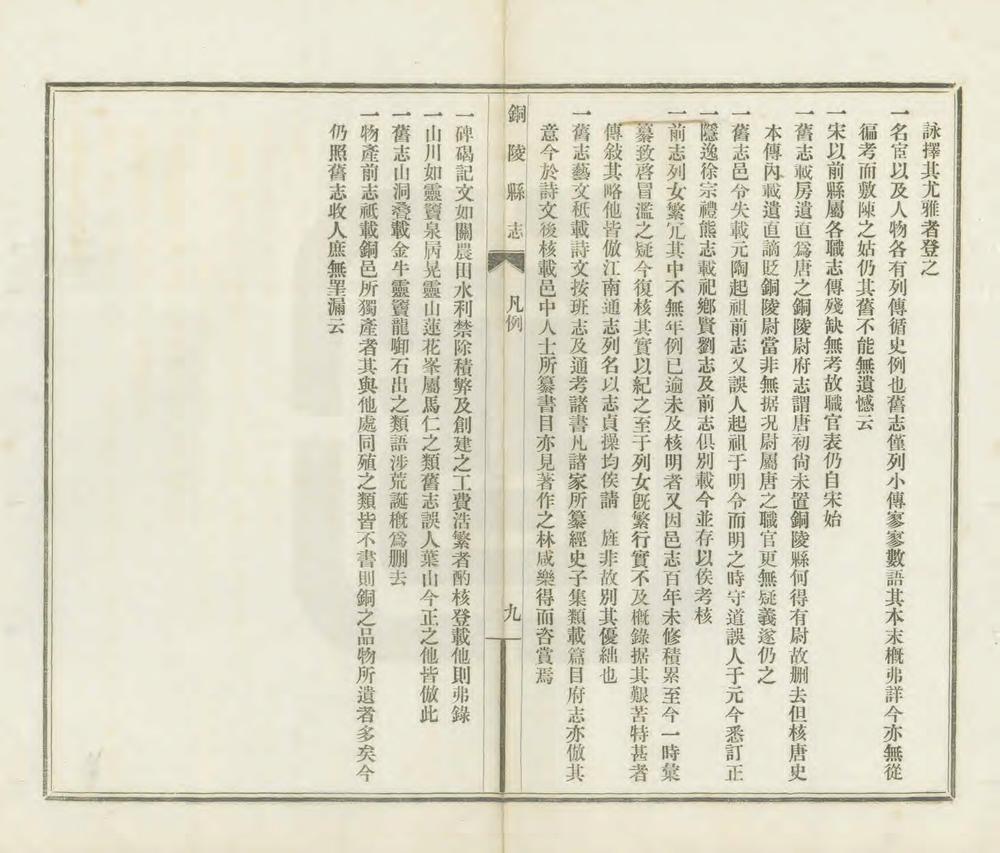 詠擇其尤雅者登之
一名宦以及人物各有列傳循史例也舊志僅列小傳寥寥數語其本末槪弗詳今亦無從
徧考而敷陳之姑仍其舊不能無遺憾云
一宋以前縣屬各職志傳殘缺無考故職官表仍自宋始
一舊志載房遺直爲唐之銅陵尉府志謂唐初尙未置銅陵縣何得有尉故删去但核唐史
本傳內載遺直謫貶銅陵尉當非無据况尉屬唐之職官更無疑義遂仍之
一舊志邑令失載元陶起祖前志又誤人起祖于明令而明之時守道誤人于元今悉訂正
一隱逸徐宗禮熊志載祀鄉賢劉志及前志俱別載今並存以俟考核
一前志列女繁冗其中不無年例已逾未及核明者又因邑志百年未修積累至今一時彙
纂致啓冒濫之疑今復核其實以紀之至于列女旣繁行實不及槪錄据其艱苦特甚者
傳敍其略他皆倣江南通志列名以志貞操均俟請　旌非故別其優絀也
一舊志藝文秪載詩文按班志及通考諸書凡諸家所纂經史子集類載篇目府志亦倣其
意今於詩文後核載邑中人士所纂書目亦見著作之林咸樂得而咨賞焉
銅陵縣志　凡例　九
一碑碣記文如關農田水利禁除積弊及創建之工費浩繁者酌核登載他則弗錄
一山川如靈竇泉屛晃靈山蓮花峯屬馬仁之類舊志誤人葉山今正之他皆倣此
一舊志山洞疊載金牛靈竇龍啣石出之類語涉荒誕槪爲删去
一物產前志祇載銅邑所獨產者其與他處同殖之類皆不書則銅之品物所遺者多矣今
仍照舊志收人庶無罣漏云